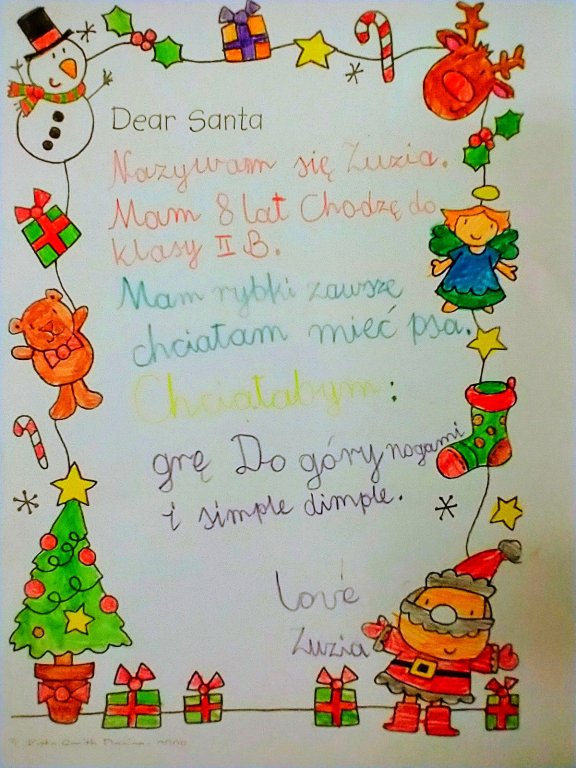 Dear Santa
Nazywam się Zuzia.
Mam 8 lat Chodzę do
klasy II B.
Mam rybki zawsze
chciałam mieć psa.
Chciałabym:
grę Do góry nogami
i simple dimple.
Love
Zuzia